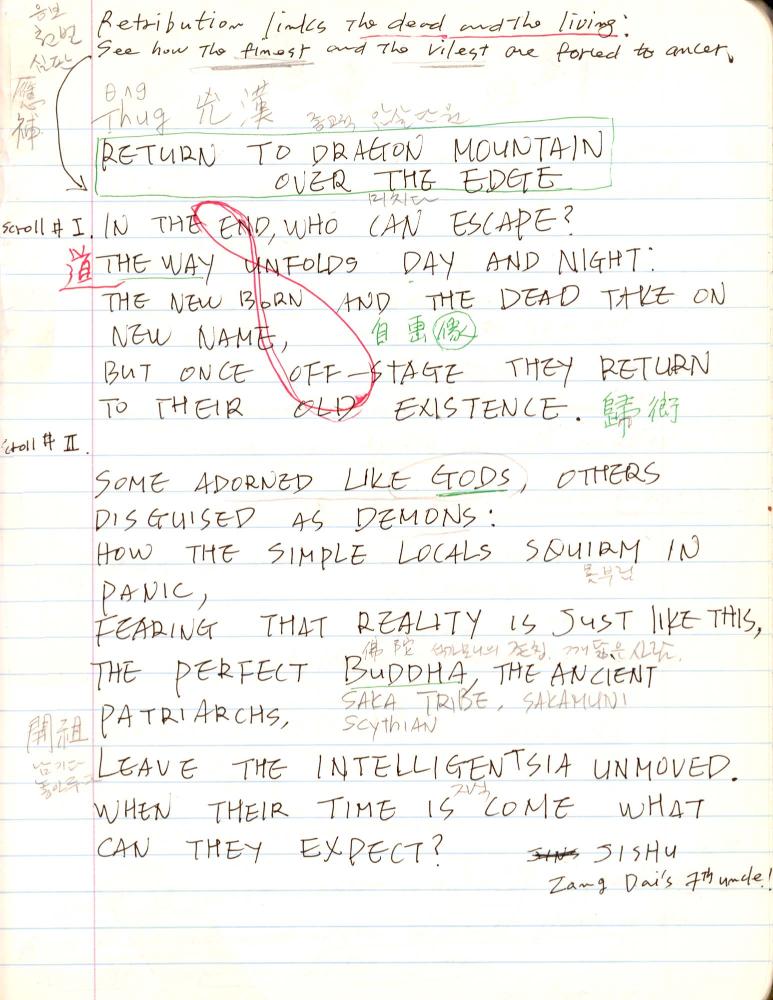 Retribution links The dead and The living:
See how The finest and The vilest are forced to ancer.
응보
심판
應
補
Thug 兇 漢
RETURN TO DRAGON MOUNTAIN
OVER THE EDGE
미치다
scroll # I. IN THE END, WHO CAN ESCAPE?
道 THE WAY UNFOLDS DAY AND NIGHT:
THE NEW BORN AND THE DEAD TAKE ON
NEW NAME, 自 畫 像
BUT ONCE OFF-STAGE THEY RETURN
TO THEIR OLD EXISTENCE. 歸
scroll # II.
SOME ADORNED LIKE GODS, OTHERS
DISGUISED AS DEMONS:
HOW THE SIMPLE LOCALS SQUIRM IN
PANIC,
FEARING THAT REALITY IS JUST LIKE THIS,
佛 陀 석가모니의 존칭. 깨닮은 사람.
THE PERFECT BUDDHA, THE ANCIENT
PATRIARCHS, SAKA TRIBE, SAKAMUNI
SCYTHIAN
開祖
남기다
LEAVE THE INTELLIGENTSIA UNMOVED.
지식
WHEN THEIR TIME IS COME WHAT
CAN THEY EXPECT? JISHU
Zang Dai's 7th uncle!